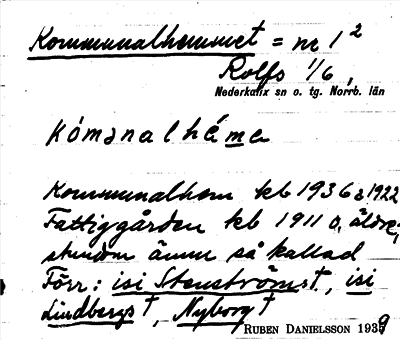 Kommunalhemmet = nr 1²
Rolfs 1/6,
Nederkalix sn o. tg. Norrb. län
kómənalhé̱me
Kommunalhem kb 1936 o. 1922
Fattiggården kb 1911 o. äldre;
stundom ännu så kallad
Förr: isi Stenströmst, isi
Lindbergst, Nyborgt
RUBEN DANIELSSON 1939